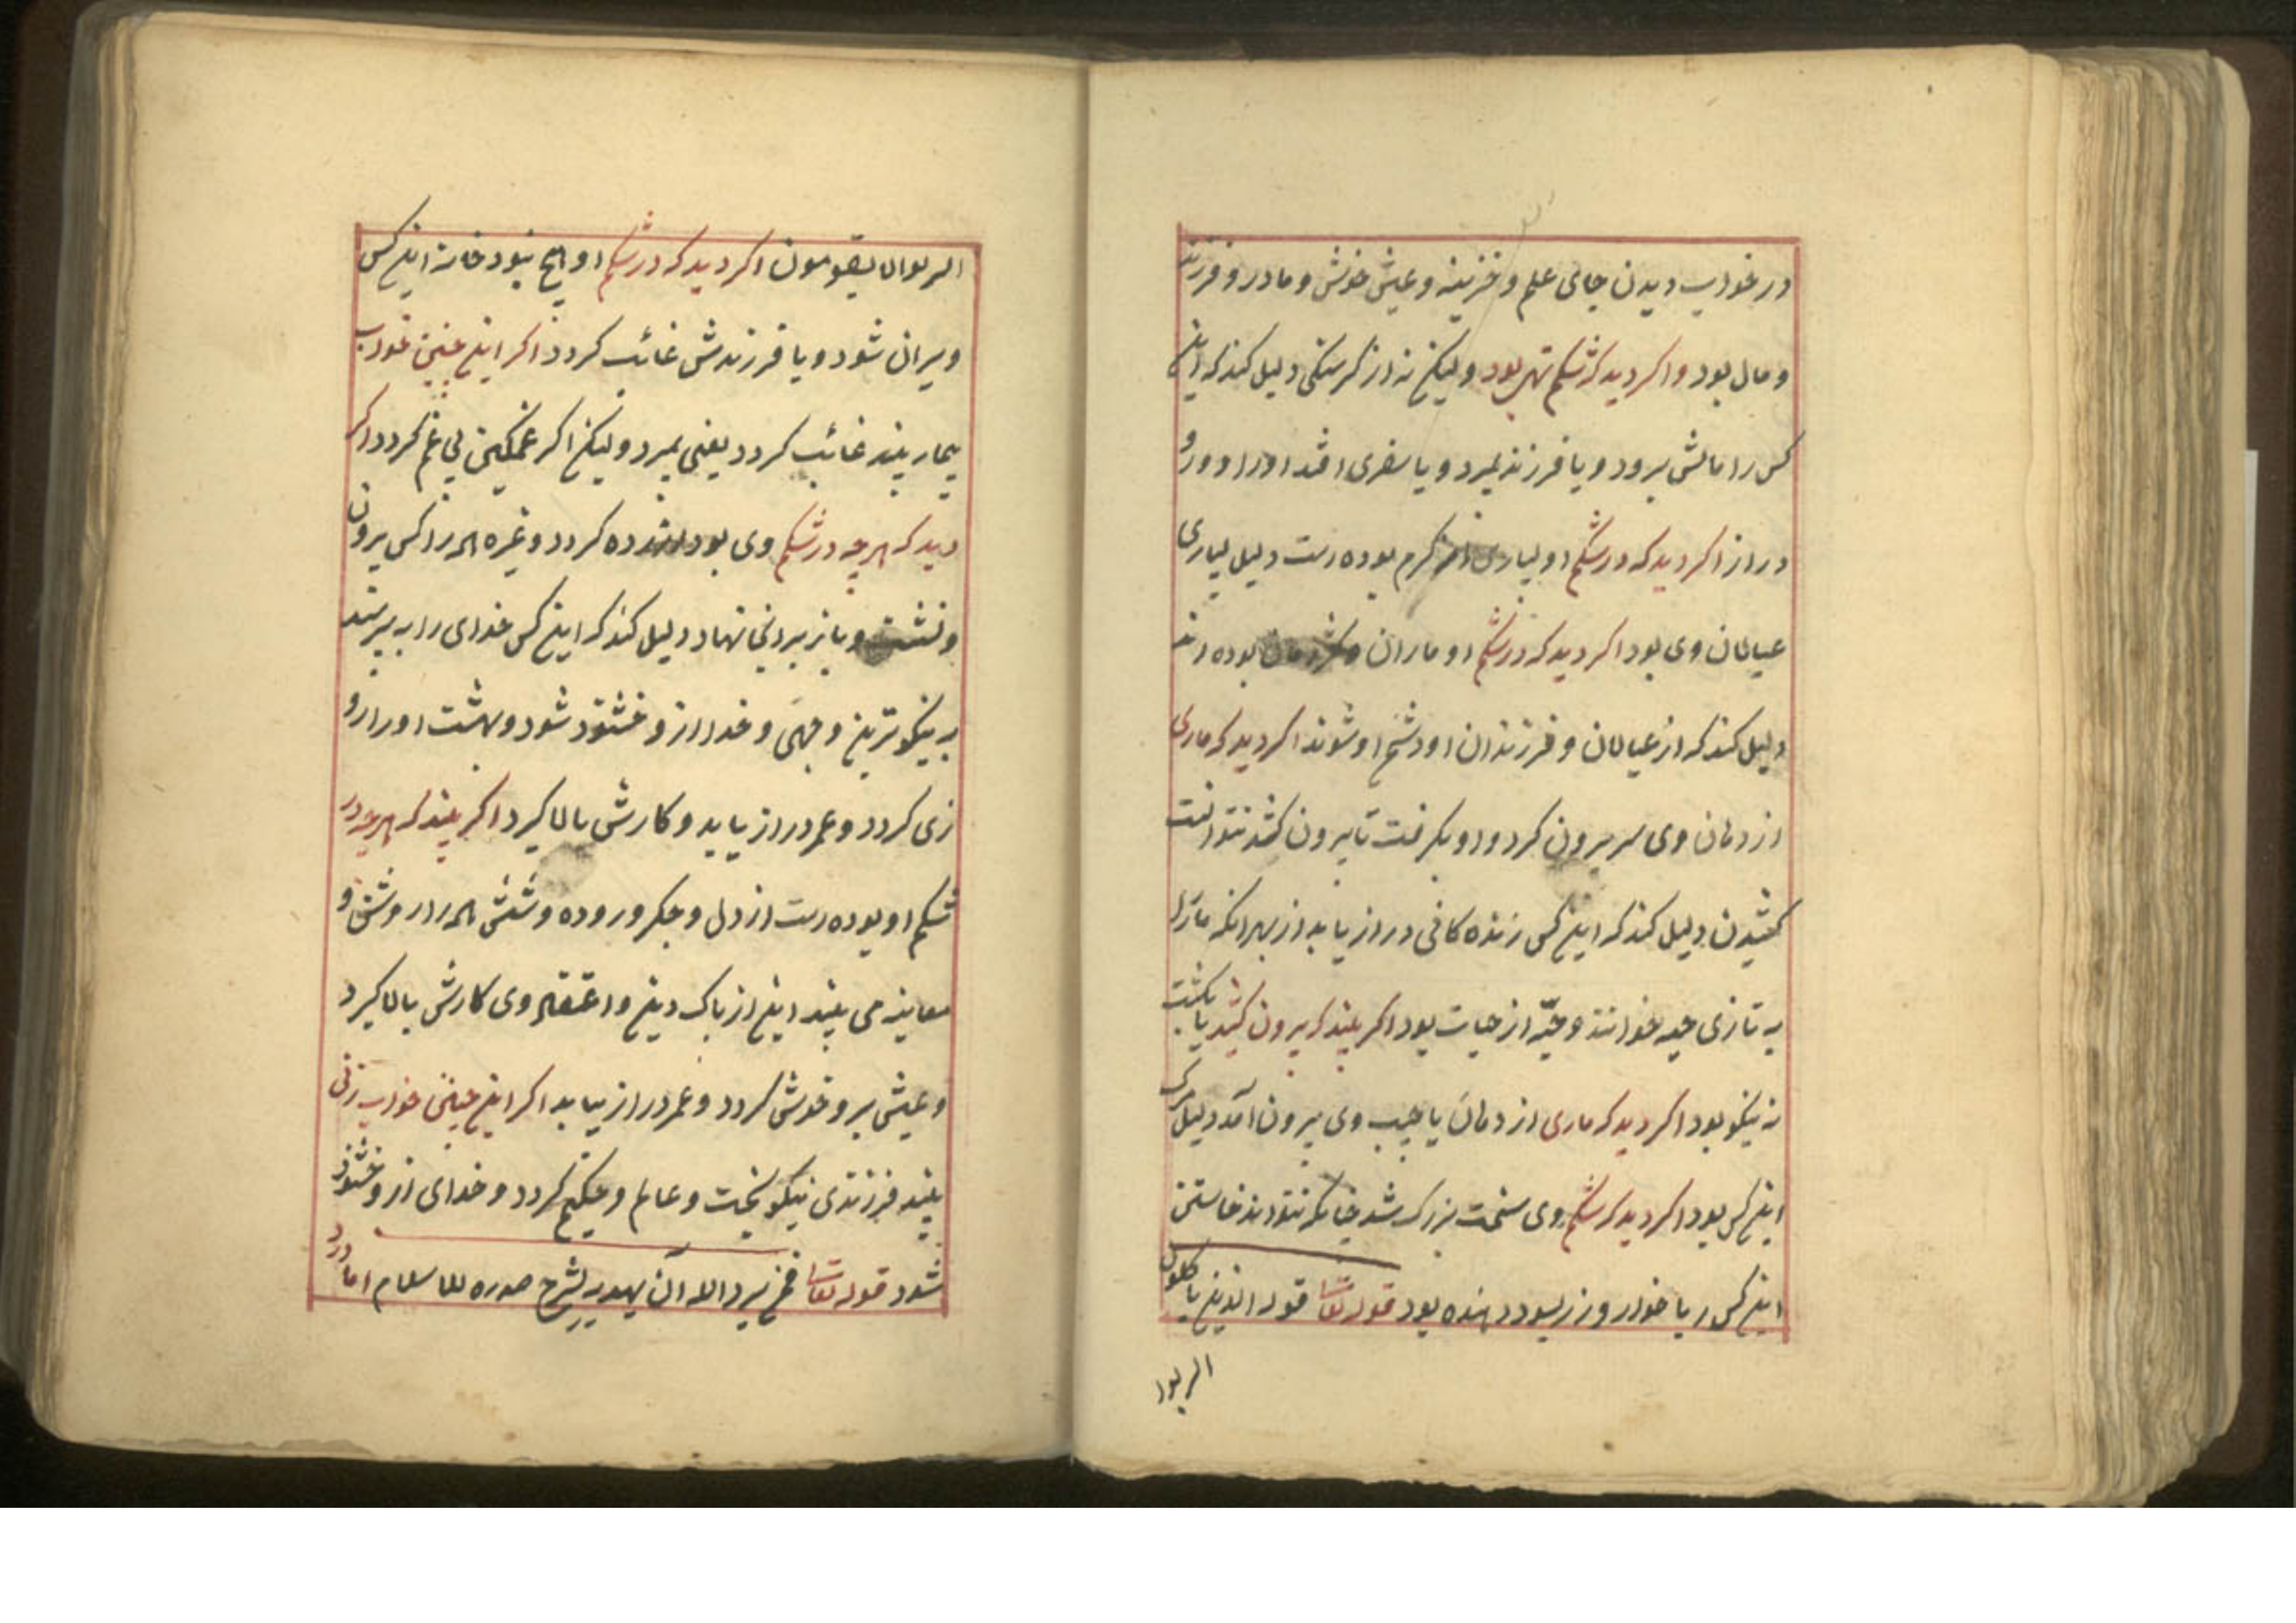 در خواب دیدن جای علم و خزینه و عیش خوش و مادر و فرزند
و مال بود واکر دید که شکم تهی بود ولیکن نه از کرسنکی دلیل کند که این
کس را مالش برود و یا فرزند بمیرد و یا سفری افتد اورا و
دراز اکر دید که در شکم او بسیاری کرم بوده است دلیل بسیاری
عیالان وی بود اکر دید که در شکم او ماران بوده اند
دلیل کند که از عیالان و فرزندان او دشخ او شوند اکر دید که ماری
از دهان وی سر بیرون کرد و او بکرفت تا بیرون کشد نتوانست
کشیدن دلیل کند که این کس زنده کانی دراز یابد از بهر انکه مار را
به تازی حیه خوانند و حیّه از حیات بود اکر بیند که بیرون کشید یا بکشت
نه نیکو بود اکر دید که ماری از دهان یا جیب وی بیرون آمد دلیل مرک
این کس بود اکر دید که شکم وی سخت بزرک شد چنانکه نتواند خاستن
این کس ربا خوار و زر بسود دهنده بود قوله تعالی قوله الذین یاکلون
الربوا
الربوا لا یقومون اکر دید که در شکم او هیچ نبود خانه این کس
ویران شود و یا فرزندش غائب کردد اکر این چنین خواب
بیمار بیند غائب کردد یعنی بمیرد ولیکن اکر غمکین بی غم کردد اکر
دید که هرچه در شکم وی بود کردد و غیره همه را کس بیرون
و بشست و باز بر انجا نهاد دلیل کند که این کس خدای را به پرستد
به نیکوترین وجهی و خدا از و خشنود شود و بهشت اورا رو
زی کردد و عمر دراز یابد و کارش بالا کیرد اکر بیند که هرچه در
شکم او بوده است از دل و جکر و روده و شش همه را روشن و
معاینه می بیند این از پاک دین و اعتقاد وی کارش بالا کیرد
و عیش برو خوش کردد و عمر دراز بیابد اکر این چنین خواب زنی
بیند فرزندی نیکو بخت و عالم و حکیم کردد و خدای از و خشنود
شود قوله تعالی فمن یرد الله آن یهدیه یشرح صدره للاسلام اما درد